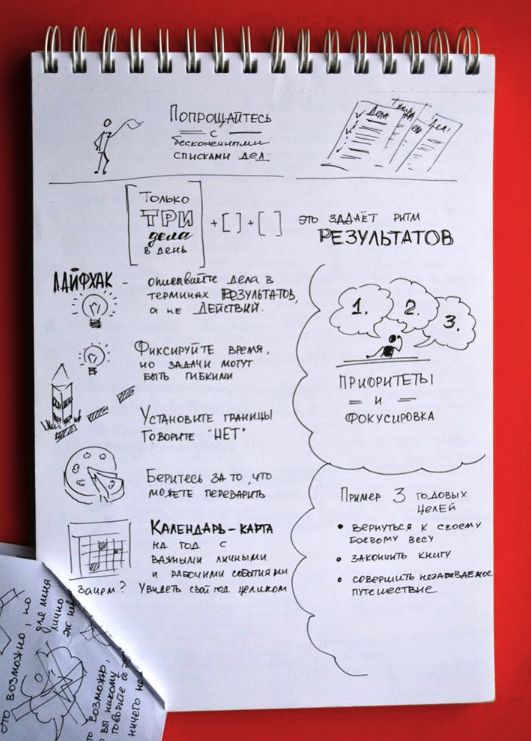 Попрощайтесь
с
бесконечными
списками дел
Дела
Дел
Только
ТРИ
дела
в день
+ [ ] + [ ]
это задаёт ритм
РЕЗУЛЬТАТОВ
ЛАЙФХАК -
описывайте дела в
терминах РЕЗУЛЬТАТОВ,
а не ДЕЙСТВИЙ.
Фиксируйте время,
но задачи могут
быть гибкими
Установите границы
Говорите "НЕТ"
Беритесь за то, что
можете переварить
КАЛЕНДАРЬ-КАРТА
на год с
важными личными
и рабочими событиями
Зачем? Увидеть свой год целиком
1.
2.
3.
ПРИОРИТЕТЫ
И
ФОКУСИРОВКА
Пример 3 годовых
целей
• вернуться к своему
боевому весу
• закончить книгу
• совершить незабываемое
путешествие
это возможно, но
для меня
лично
возможно,
никому
говорите
ничего не